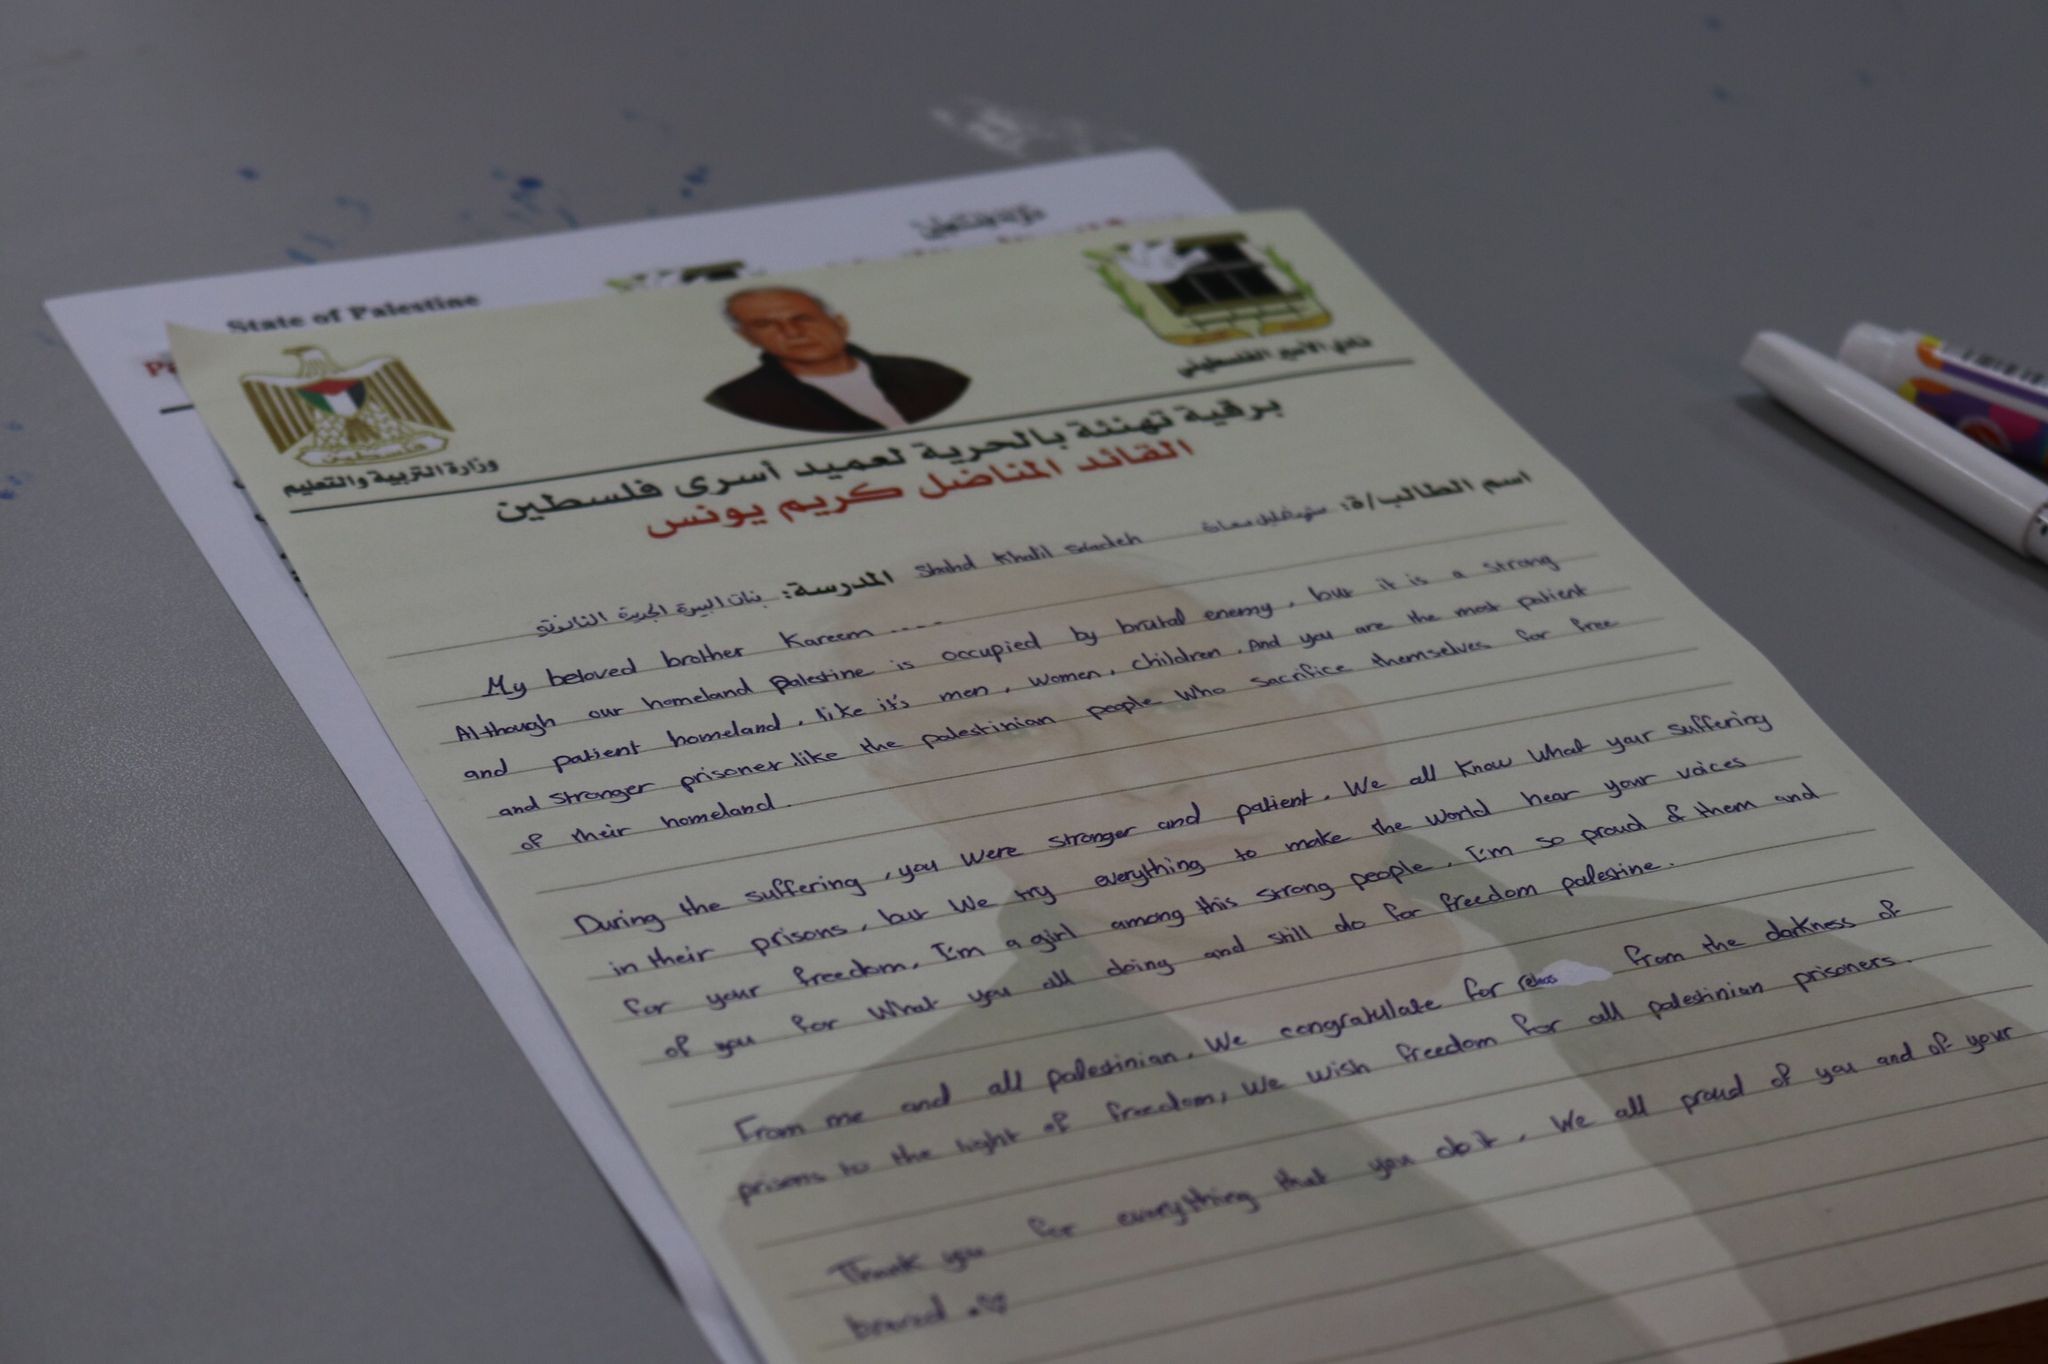 State of Palestine
وزارة التربية والتعليم
فلسطين
نادي الأسير الفلسطيني
برقية تهنئة بالحرية لعميد أسرى فلسطين
القائد المناضل كريم يونس
اسم الطالب/ة: Shahd Khalil
المدرسة: بنات البيرة الجديدة الثانوية
My beloved brother Kareem ....
Although our homeland palestine is occupied by brutal enemy, but it is a strong
and patient homeland, like it's men, women, children. And you are the most patient
and stronger prisoner, like the palestinian people who sacrifice themselves for free
of their homeland.
During the suffering, you were stronger and patient. We all know what your suffering
in their prisons, but we try everything to make the world hear your voices
for your freedom. I'm a girl among this strong people. I'm so proud of them and
of you for what you all doing and still do for freedom palestine.
From me and all palestinian. We congratulate for from the darkness of
prisons to the light of freedom, we wish freedom for all palestinian prisoners.
Thank you for everything that you do it. We all proud of you and of your